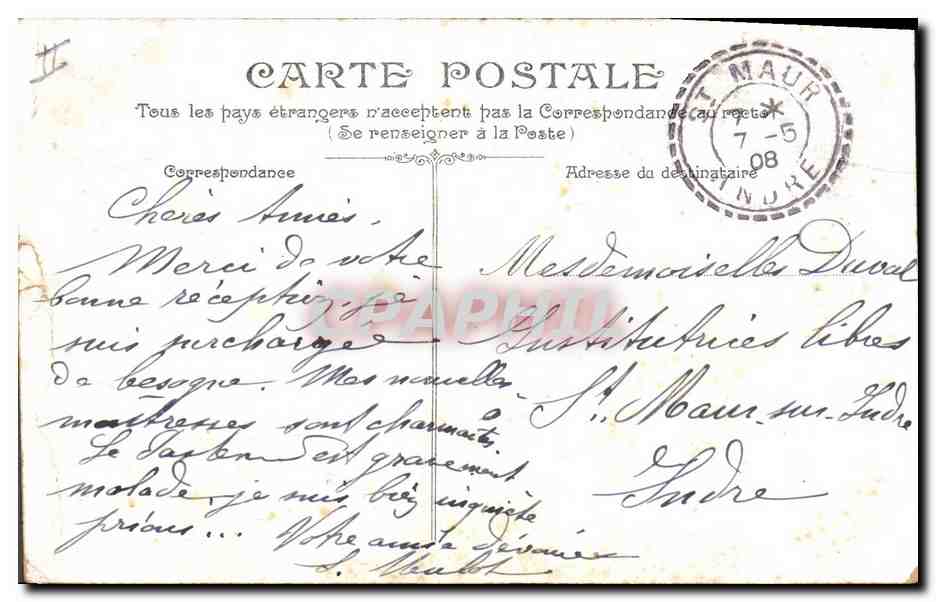 II
CARTE POSTALE
Tous les pays étrangers n'acceptent pas la Correspondance au recto
(Se renseigner à la Poste)
Correspondance
Chères Amies,
Merci de votre
bonne réception, je
suis surchargée
de besogne. Mes nouvelles
maîtresses sont charmantes
à
Le est gravement
malade, je suis bien inquiète
prions...
Votre amie dévouée
S. Mulot
Adresse du destinataire
Mesdemoiselles Duval
Institutrices libres
St. Maur-sur-Indre
Indre
ST. MAUR
7 *
7 -5
08
INDRE
CPAPHIL